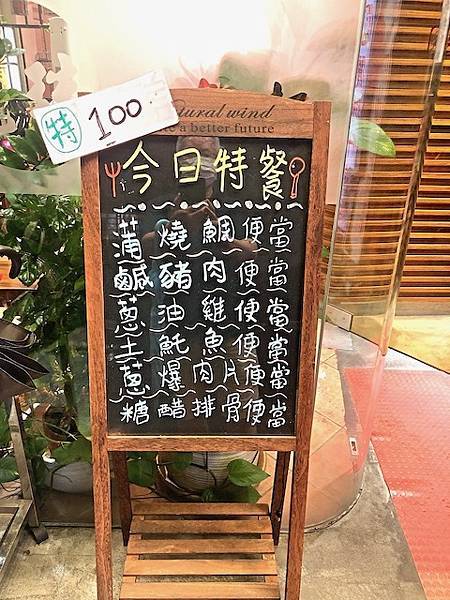 特 100
tural wind
e a better future
今日特餐
蒲燒鯛便當
鹹豬肉便當
蔥油雞便當
土魠魚便當
蔥爆肉片便當
糖醋排骨便當